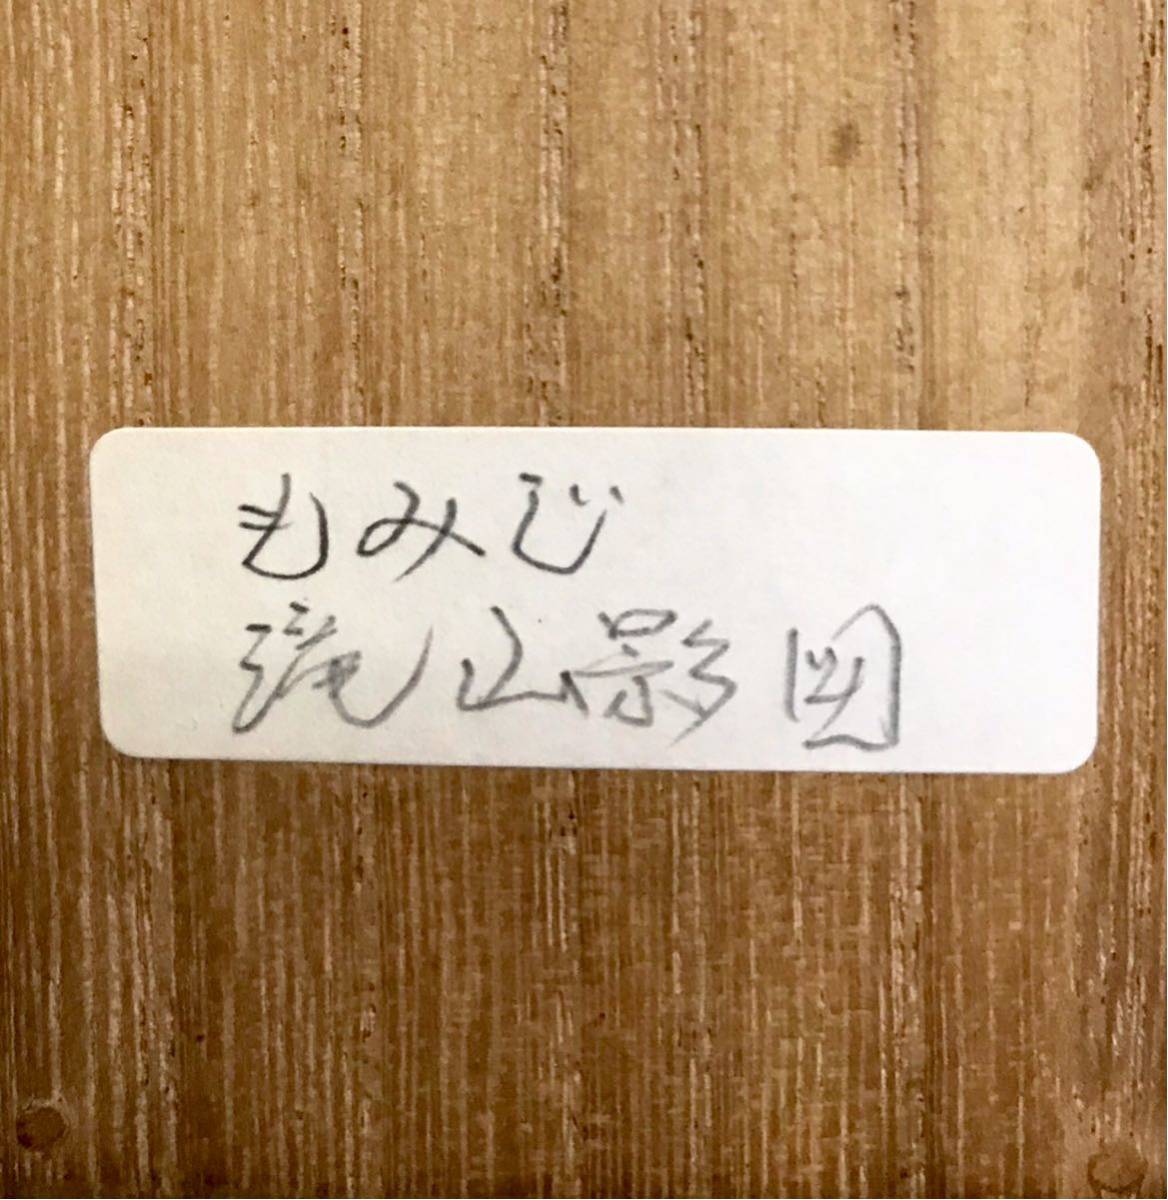 もみじ
滝山影図